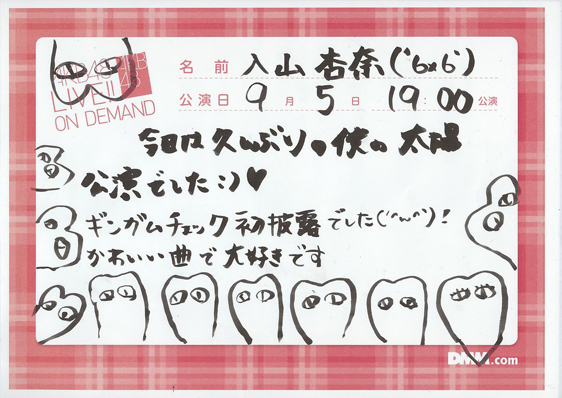 AKB48
LIVE!!
ON DEMAND
名前 入山杏奈(`6x6´)
公演日 9月5日 19:00公演
今日は久しぶりの僕の太陽
公演でした:)♥
ギンガムチェック初披露でした(´^ω^`)!
かわいい曲で大好きです
DMM.com